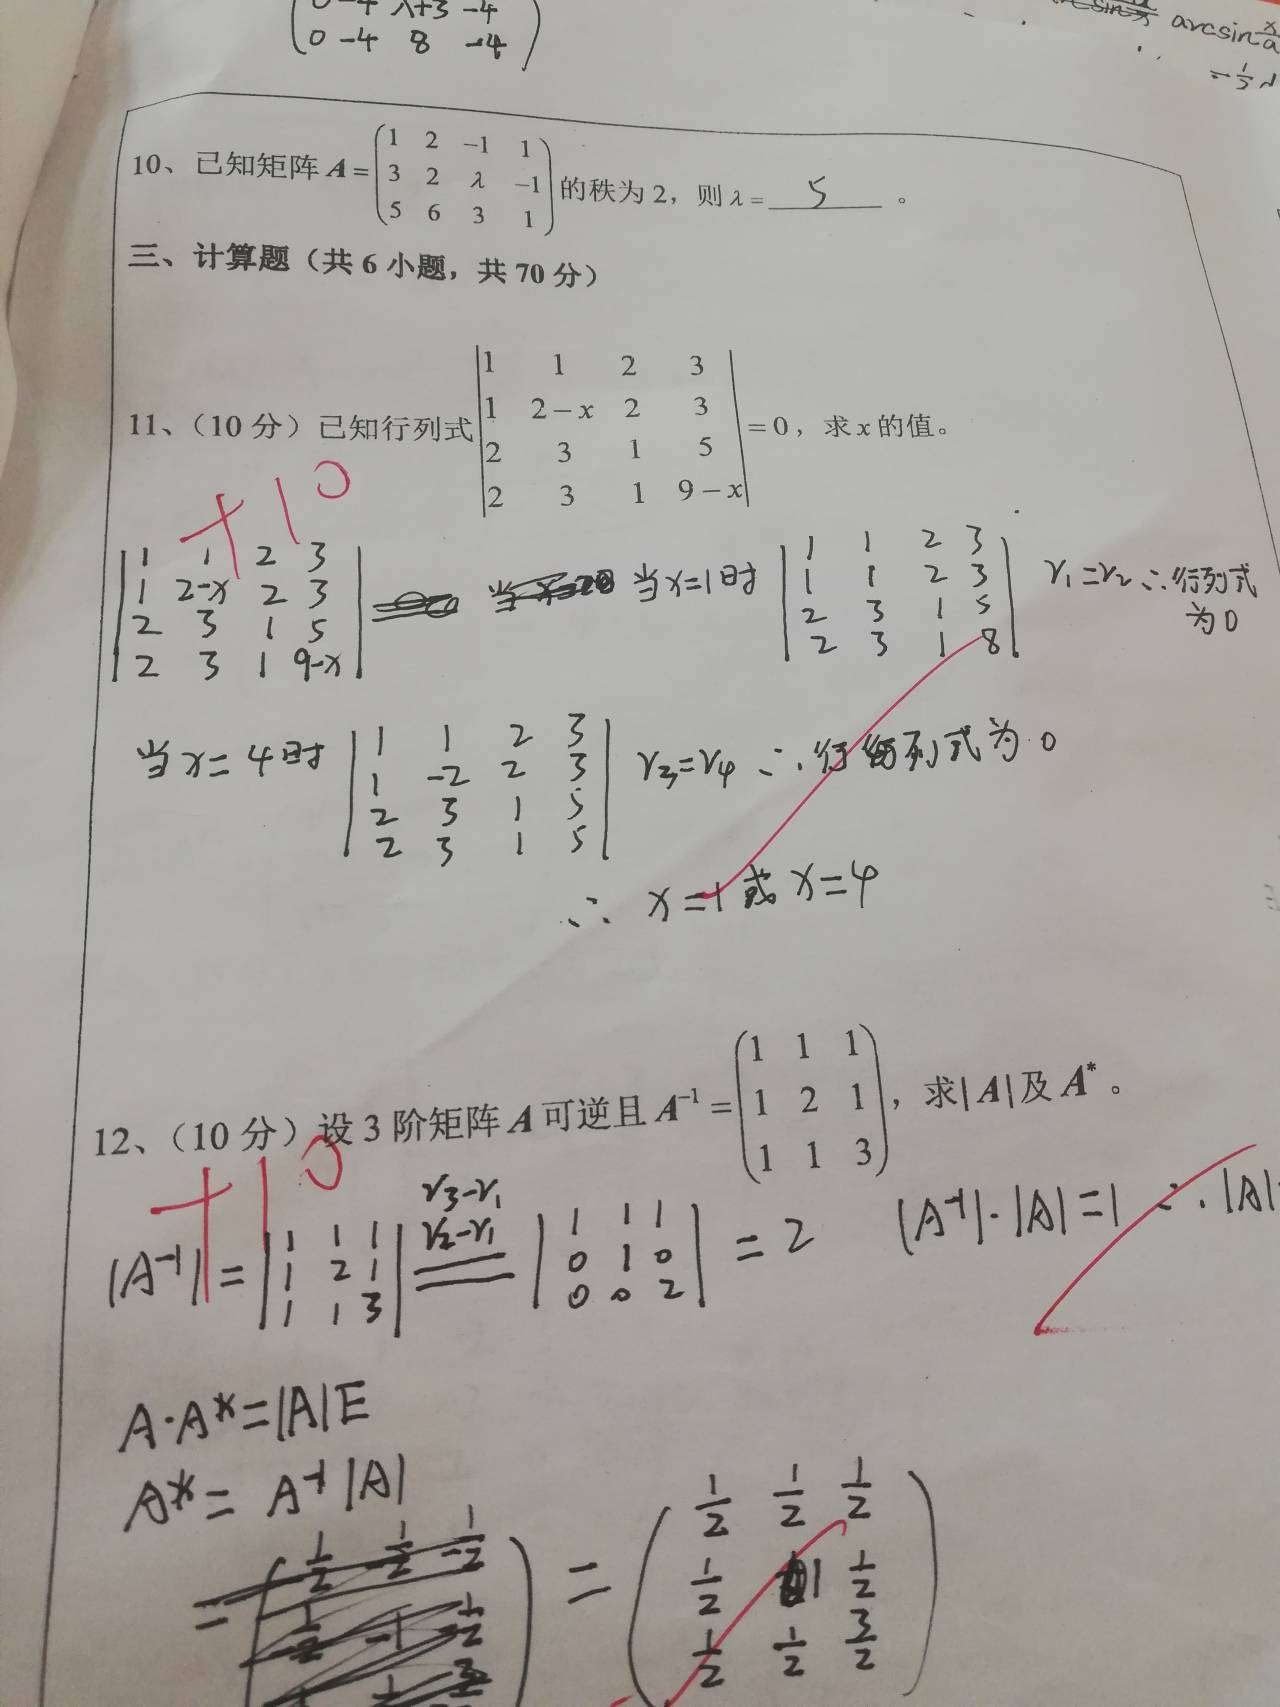 0 -4 λ+3 -4
0 -4 8 -4
arcsin x/a
10、已知矩阵 A = (1 2 -1 1
3 2 λ -1
5 6 3 1) 的秩为 2，则 λ = 5 。
三、计算题（共 6 小题，共 70 分）
11、（10 分）已知行列式 |1 1 2 3
1 2-x 2 3
2 3 1 5
2 3 1 9-x| = 0，求 x 的值。
+10
|1 1 2 3
1 2-x 2 3
2 3 1 5
2 3 1 9-x|
当x=1时 |1 1 2 3
1 1 2 3
2 3 1 5
2 3 1 8| r₁=r₂ ∴行列式
为0
当x=4时 |1 1 2 3
1 -2 2 3
2 3 1 5
2 3 1 5| r₃=r₄ ∴行列式为0
∴ x=1或x=4
12、（10 分）设 3 阶矩阵 A 可逆且 A⁻¹ = (1 1 1
1 2 1
1 1 3)，求|A|及 A*。
+10
|A⁻¹| = |1 1 1
1 2 1
1 1 3| r₃-r₁
r₂-r₁ |1 1 1
0 1 0
0 0 2| = 2 |A⁻¹|·|A|=1 ∴|A|
A·A*=|A|E
A*= A⁻¹|A|
= = (1/2 1/2 1/2
1/2 1 1/2
1/2 1/2 3/2)